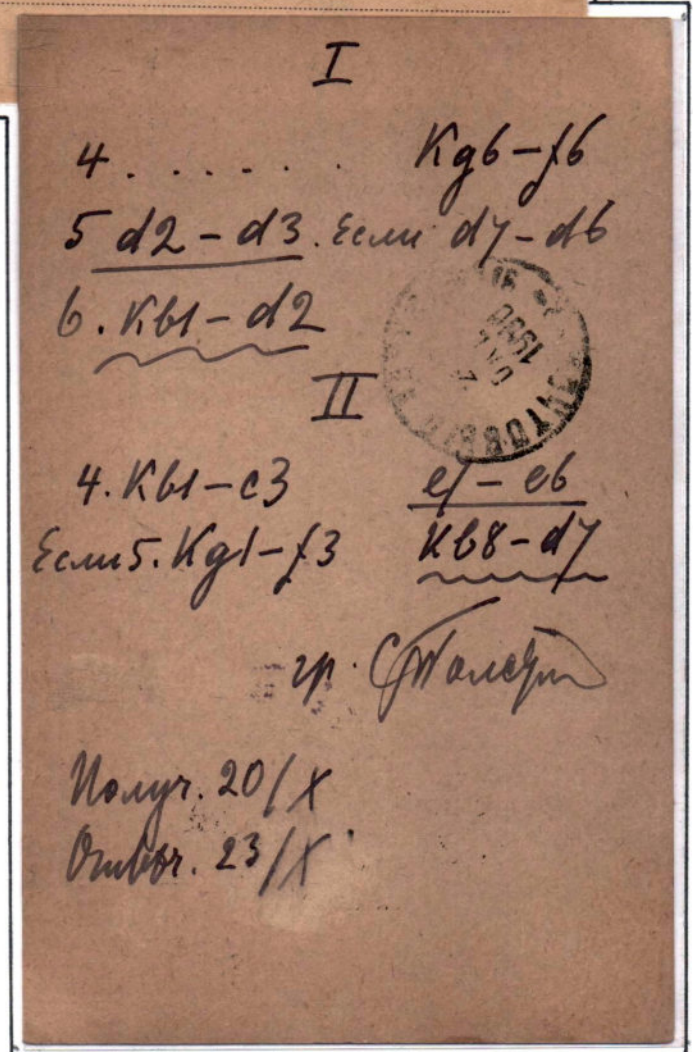 I
4 . . . . . . . Kg6-f6
5 d2-d3. Если d7-d6
6. Kb1-d2
II
4. Kb1-c3 e7-e6
Если 5. Kg1-f3 Kb8-d7
гр. СТолстой
Получ. 20/X
Отвеч. 23/X